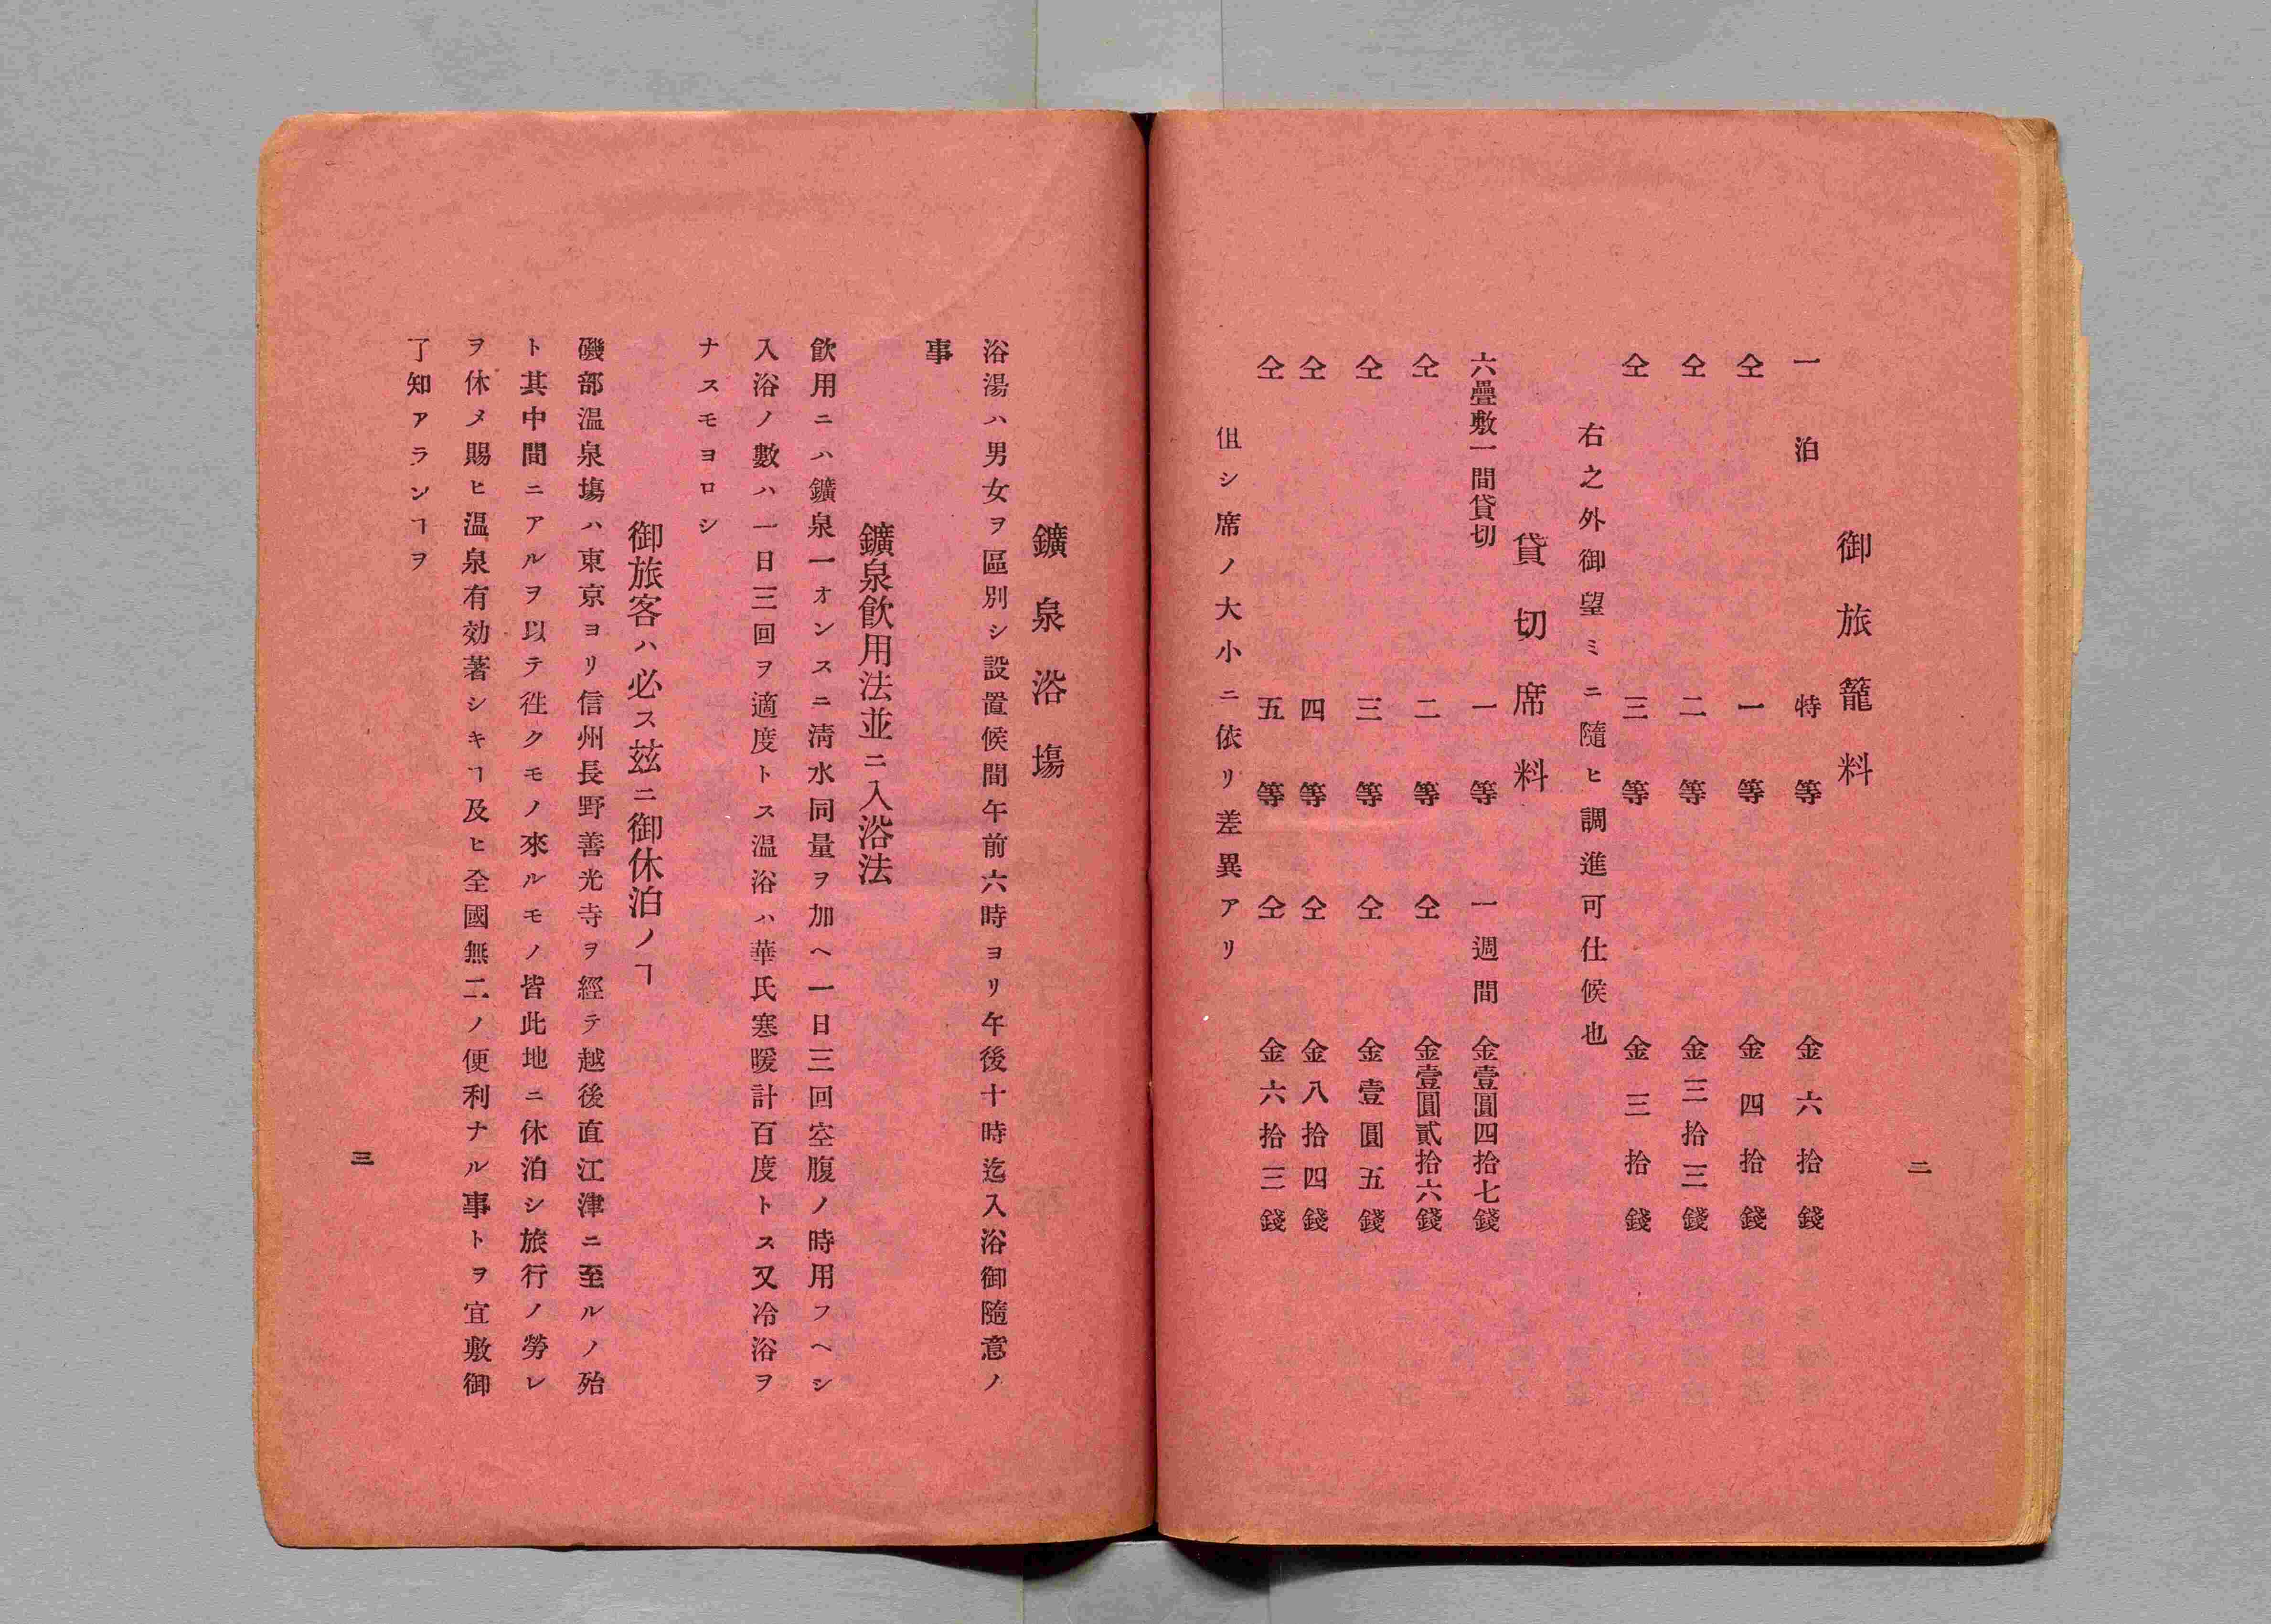 二
御旅籠料
一泊 特等 金六拾錢
仝 一等 金四拾錢
仝 二等 金三拾三錢
仝 三等 金三拾錢
右之外御望ミニ隨ヒ調進可仕候也
貸切席料
六疊敷一間貸切 一等 一週間 金壹圓四拾七錢
仝 二等 仝 金壹圓貳拾六錢
仝 三等 仝 金壹圓五錢
仝 四等 仝 金八拾四錢
仝 五等 仝 金六拾三錢
伹シ席ノ大小ニ依リ差異アリ
鑛泉浴塲
浴湯ハ男女ヲ區別シ設置候間午前六時ヨリ午後十時迄入浴御隨意ノ
事
鑛泉飮用法並ニ入浴法
飮用ニハ鑛泉一オンスニ淸水同量ヲ加ヘ一日三回空腹ノ時用フヘシ
入浴ノ數ハ一日三回ヲ適度トス温浴ハ華氏寒暖計百度トス又冷浴ヲ
ナスモヨロシ
御旅客ハ必ス玆ニ御休泊ノヿ
磯部温泉塲ハ東京ヨリ信州長野善光寺ヲ經テ越後直江津ニ至ルノ殆
ト其中間ニアルヲ以テ徃クモノ來ルモノ皆此地ニ休泊シ旅行ノ勞レ
ヲ休メ賜ヒ温泉有効著シキヿ及ヒ全國無二ノ便利ナル事トヲ宜敷御
了知アランヿヲ
三